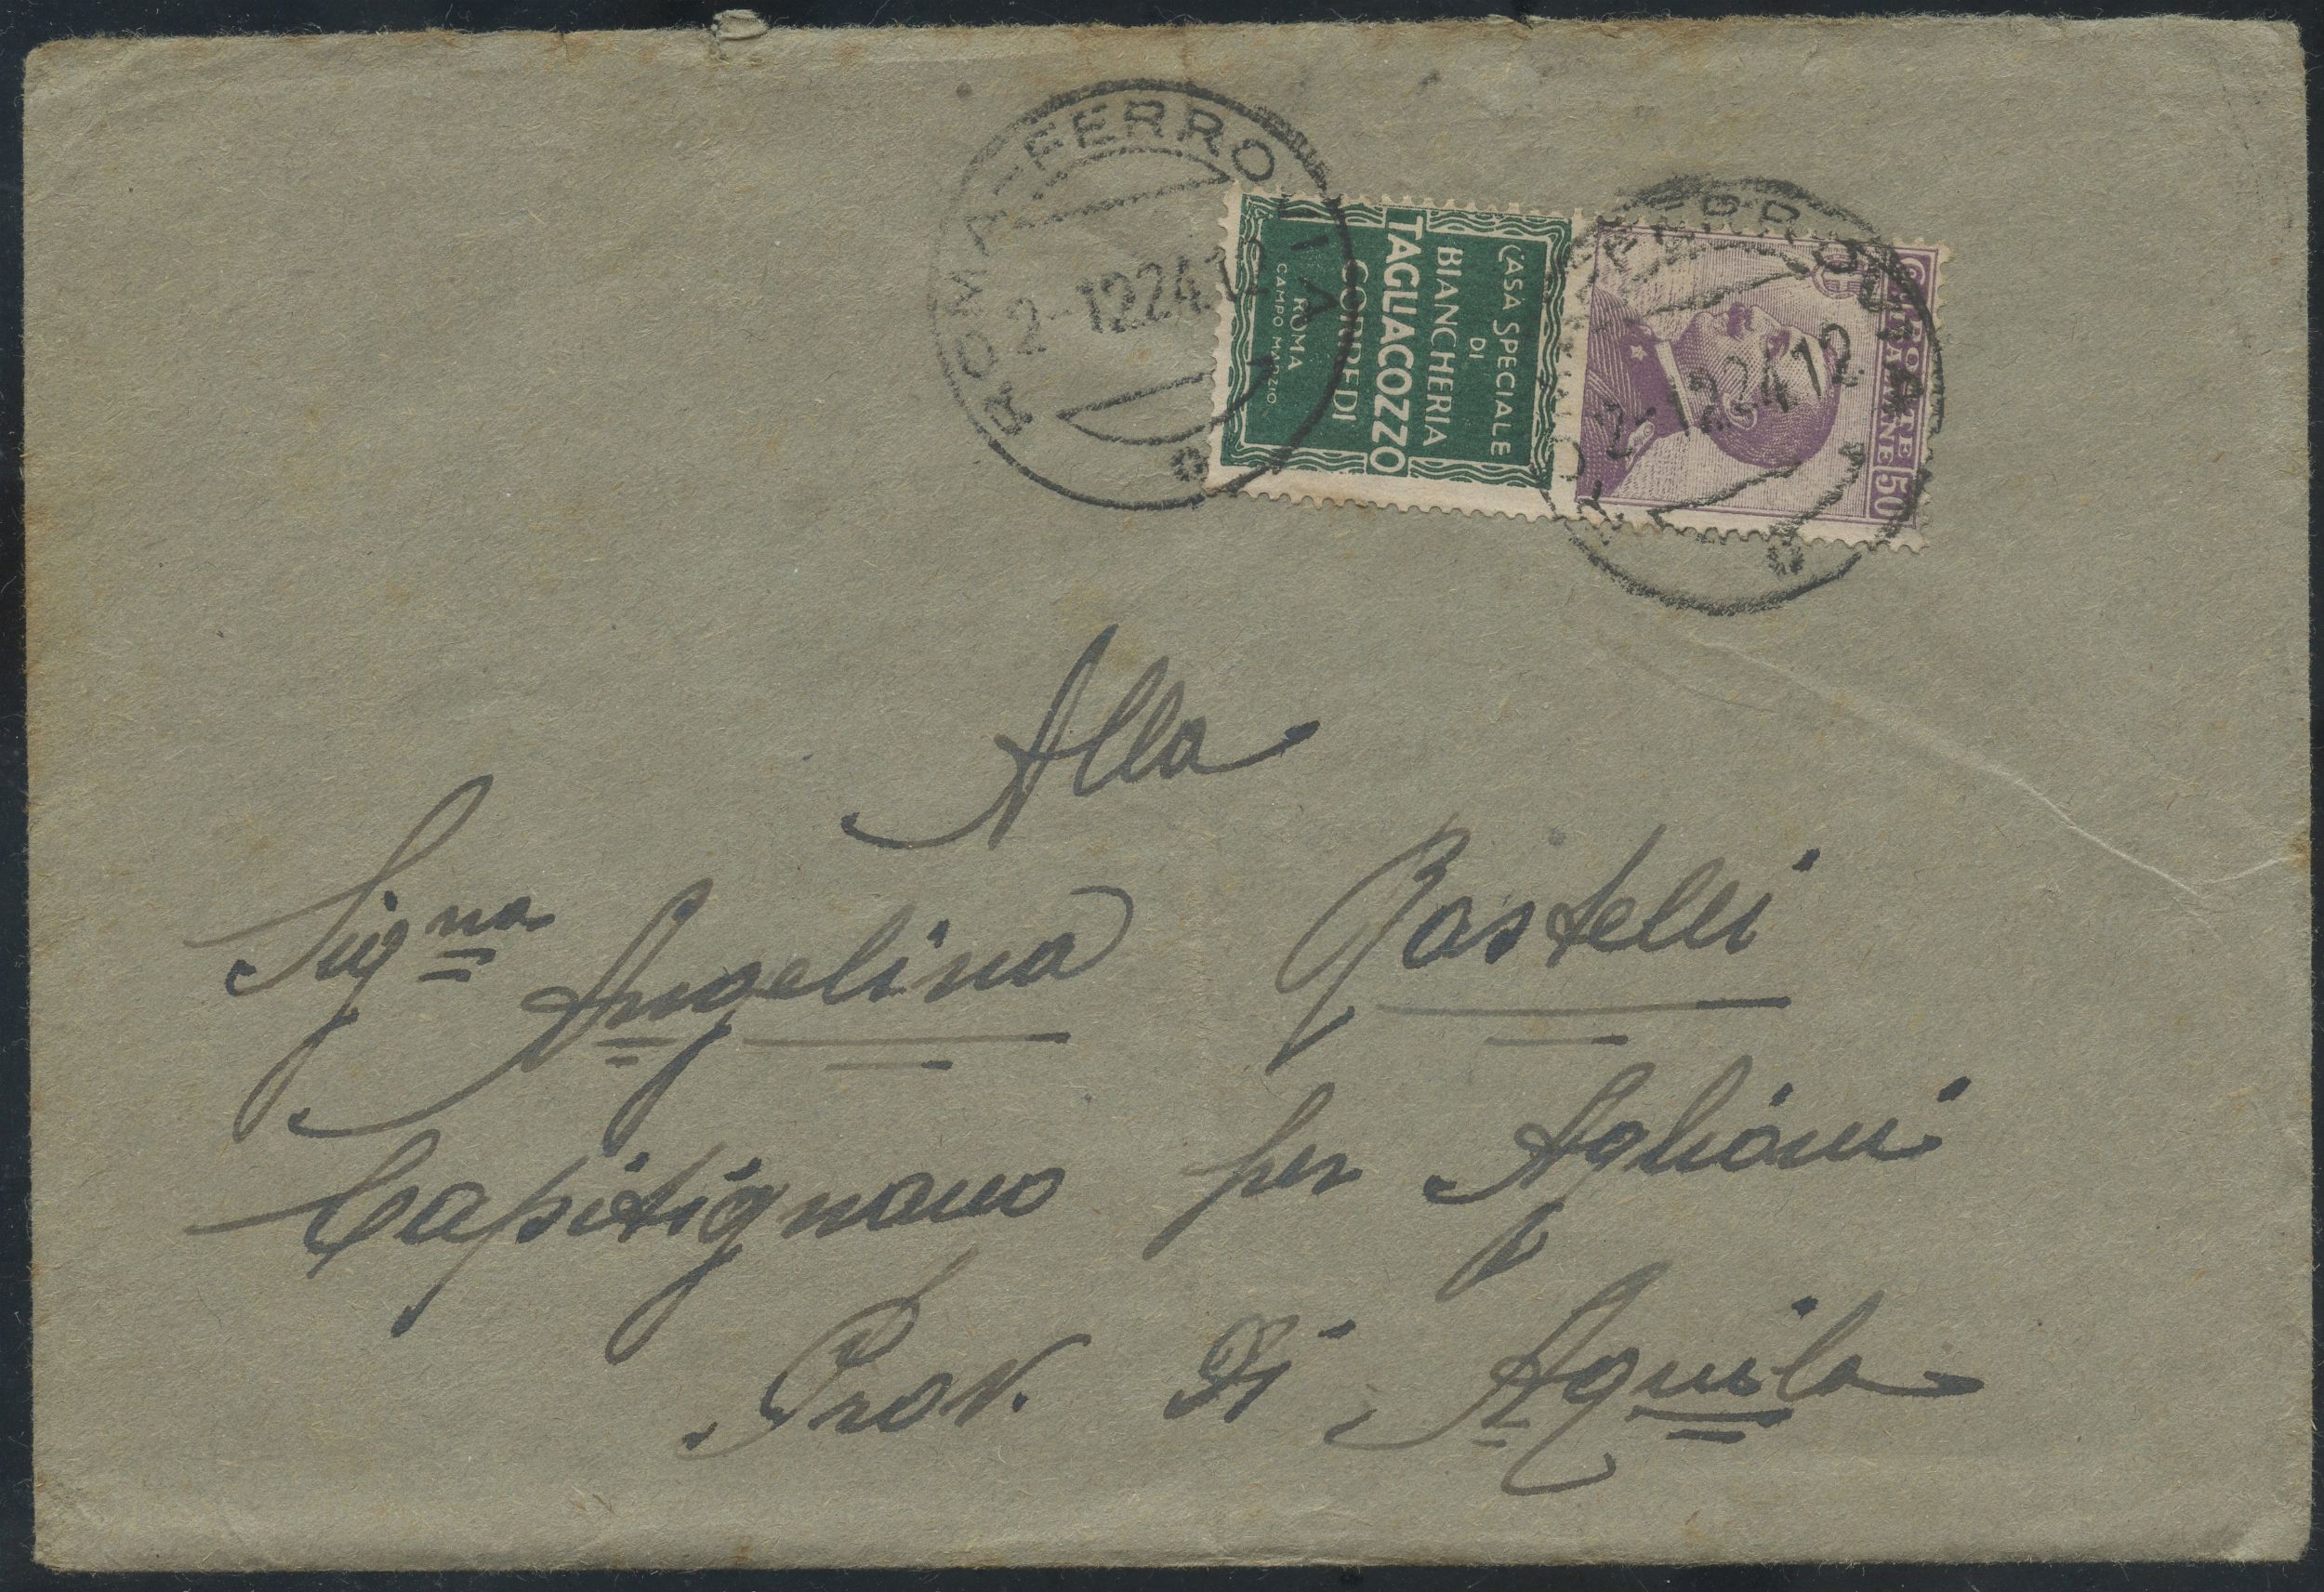 ROMA-FERROVIA
2-12 24.12
CASA SPECIALE
DI
BIANCHERIA
TAGLIACOZZO
CORREDI
ROMA
CAMPO MARZIO
POSTE
ITALIANE
50
2-12 24 12
Alla
Signa Angelina Rastelli
Capitignano per Aglioni
Prov. Di Aquila